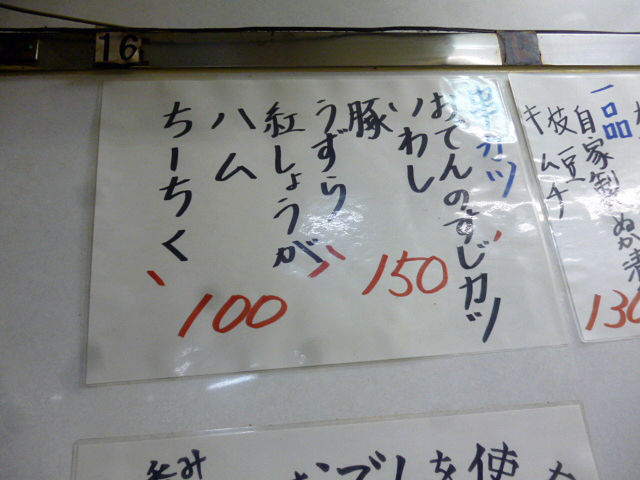 16
おでんのすじカツ
いわし
豚
150
うずら
紅しょうが
ハム
ちーちく
100
一品
自家製ぬか漬
枝豆
キムチ
130
を使